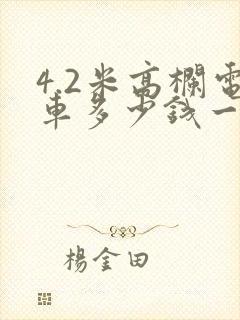 4.2米高欄電
車多少钱一
楊金田